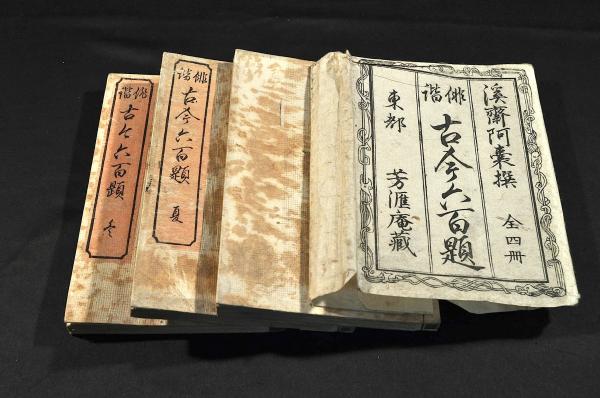 溪齋阿嚢撰
全四冊
俳諧
古今六百題
東都
芳滙庵藏
俳諧
古今六百題
夏
俳諧
古今六百題
冬